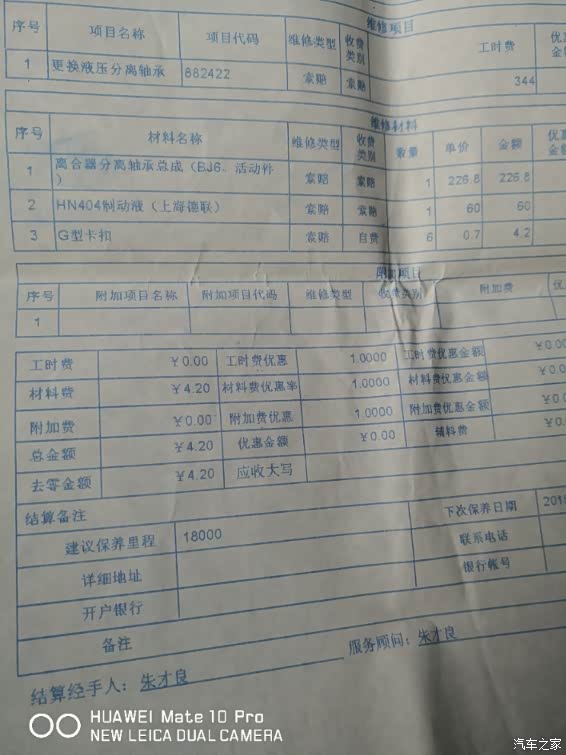 维修项目
序号 项目名称 项目代码 维修类型 收费类别 工时费 优
1 更换液压分离轴承 882422 索赔 索赔 344
维修材料
序号 材料名称 维修类型 收费类别 数量 单价 金额 优惠
1 离合器分离轴承总成（BJ6、活动件） 索赔 索赔 1 226.8 226.8
2 HN404制动液（上海德联） 索赔 索赔 1 60 60
3 G型卡扣 索赔 自费 6 0.7 4.2
附加项目
序号 附加项目名称 附加项目代码 维修类型 收费类别 附加费 优
1
工时费 ￥0.00 工时费优惠 1.0000 工时费优惠金额 ￥0.00
材料费 ￥4.20 材料费优惠率 1.0000 材料费优惠金额 ￥0.0
附加费 ￥0.00 附加费优惠 1.0000 附加费优惠金额 ￥0.0
总金额 ￥4.20 优惠金额 ￥0.00 辅料费 ￥0.
去零金额 ￥4.20 应收大写
结算备注
建议保养里程 18000 下次保养日期 201
详细地址 联系电话
开户银行 银行帐号
备注
结算经手人：朱才良 服务顾问：朱才良
HUAWEI Mate 10 Pro
NEW LEICA DUAL CAMERA
汽车之家